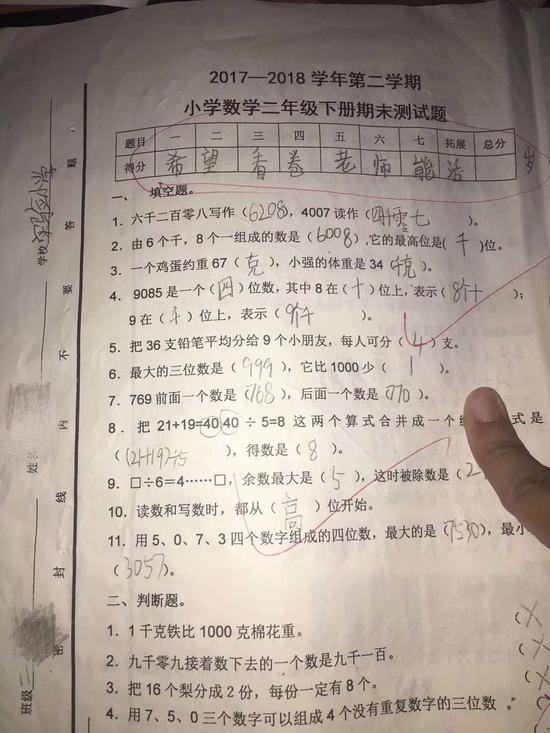 2017—2018 学年第二学期
小学数学二年级下册期末测试题
题目 一 二 三 四 五 六 七 拓展 总分
得分 希 望 香 卷 老 师 能 活 岁
一、 填空题。
1. 六千二百零八写作（6208），4007 读作（四千零七）。
2. 由 6 个千，8 个一组成的数是（6008）,它的最高位是(千)位。
3. 一个鸡蛋约重 67（克），小强的体重是 34（千克）。
4. 9085 是一个（四）位数，其中 8 在（十）位上，表示（8个十）；
9 在（千）位上，表示（9个千）。
5. 把 36 支铅笔平均分给 9 个小朋友，每人可分（4）支。
6. 最大的三位数是（999），它比 1000 少（1）。
7. 769 前面一个数是（768），后面一个数是（770）。
8. 把 21+19=40 40 ÷ 5=8 这 两 个 算 式 合 并 成 一 个 式 是
（(21+19)÷5），得数是（8）。
9. □÷6=4……□，余数最大是（5），这时被除数是（2
10. 读数和写数时，都从（高）位开始。
11. 用 5、0、7、3 四个数字组成的四位数，最大的是（7530），最小
（3057）。
二、判断题。
1. 1 千克铁比 1000 克棉花重。
2. 九千零九接着数下去的一个数是九千一百。
3. 把 16 个梨分成 2 份，每份一定有 8 个。
4. 用 7、5、0 三个数字可以组成 4 个没有重复数字的三位数 。
学校 实验小学
姓名
班级 二
密 封 线 内 不 要 答 题